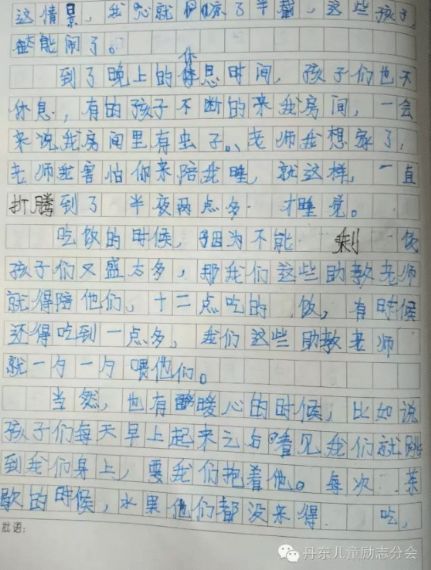 这情景，我心就凉了半截，这些孩子
能闹了。
到了晚上的休息时间，孩子们也不
休息，有的孩子不断的来我房间，一会
来说我房间里有虫子。、老师我想家了，
老师我害怕你来陪我睡，就这样，一直
折腾到了 半夜两点多 才睡觉。
吃饭的时候，因为不能 剩 饭
孩子们又盛太多，那我们这些助教老师
就得陪他们，十二点吃的 饭，有时候
还得吃到一点多，我们这些助教老师
就一勺一勺喂他们。
当然，也有暖心的时候，比如说
孩子们每天早上起来之后看见我们就
到我们身上，要我们抱着他。每次 茶
歇的时候，水果他们都没来得 吃，
批语：
丹东儿童励志分会